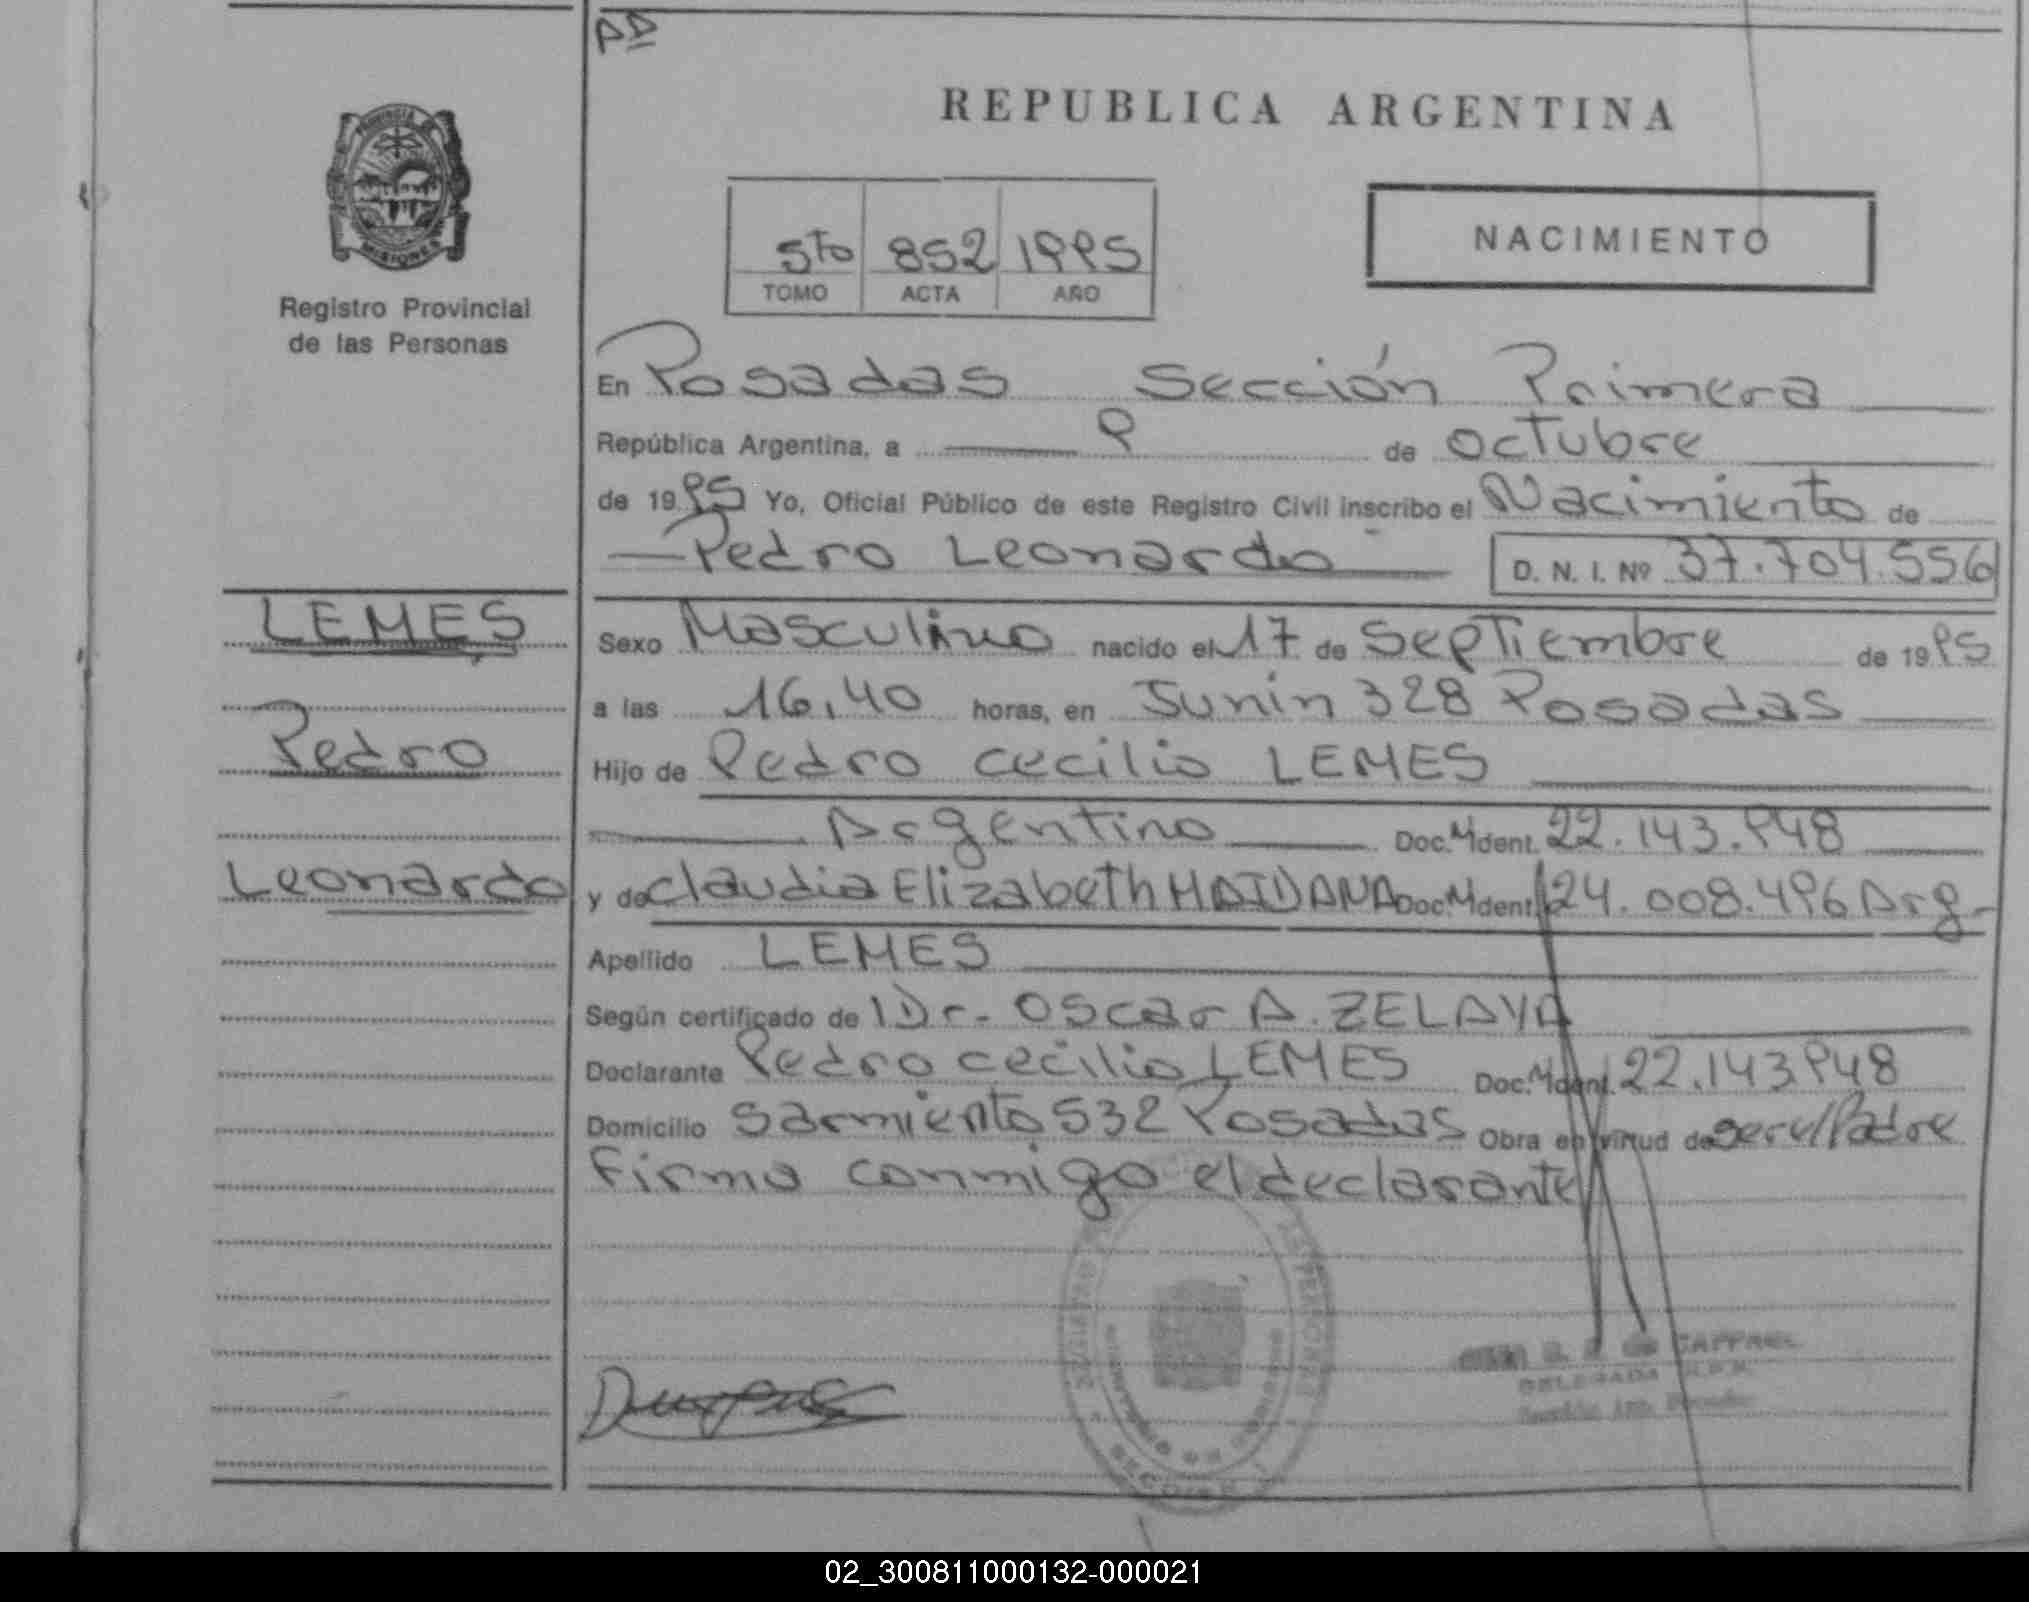 PD
REPUBLICA ARGENTINA
PROVINCIA DE
MISIONES
Registro Provincial
de las Personas
5to 852 1995
TOMO ACTA AÑO
NACIMIENTO
En Posadas Sección Primera
República Argentina, a 9 de octubre
de 1995 Yo, Oficial Público de este Registro Civil inscribo el Nacimiento de
Pedro Leonardo D. N. I. Nº 37.704.556
LEMES
Pedro
Leonardo
Sexo Masculino nacido el 17 de Septiembre de 1995
a las 16,40 horas, en Junin 328 Posadas
Hijo de Pedro Cecilio LEMES
Argentino Doc. M Ident. 22.143.948
y de Claudia Elizabeth MAIDANA Doc. M Ident. 24.008.496 Arg.
Apellido LEMES
Según certificado de Dr. Oscar A. ZELAYA
Declarante Pedro Cecilio LEMES Doc. M Ident. 22.143.948
Domicilio Sarmiento 532 Posadas Obra en virtud de ser el Padre
Firma conmigo el declarante
DELEGADA R.P.P.
02_300811000132-000021